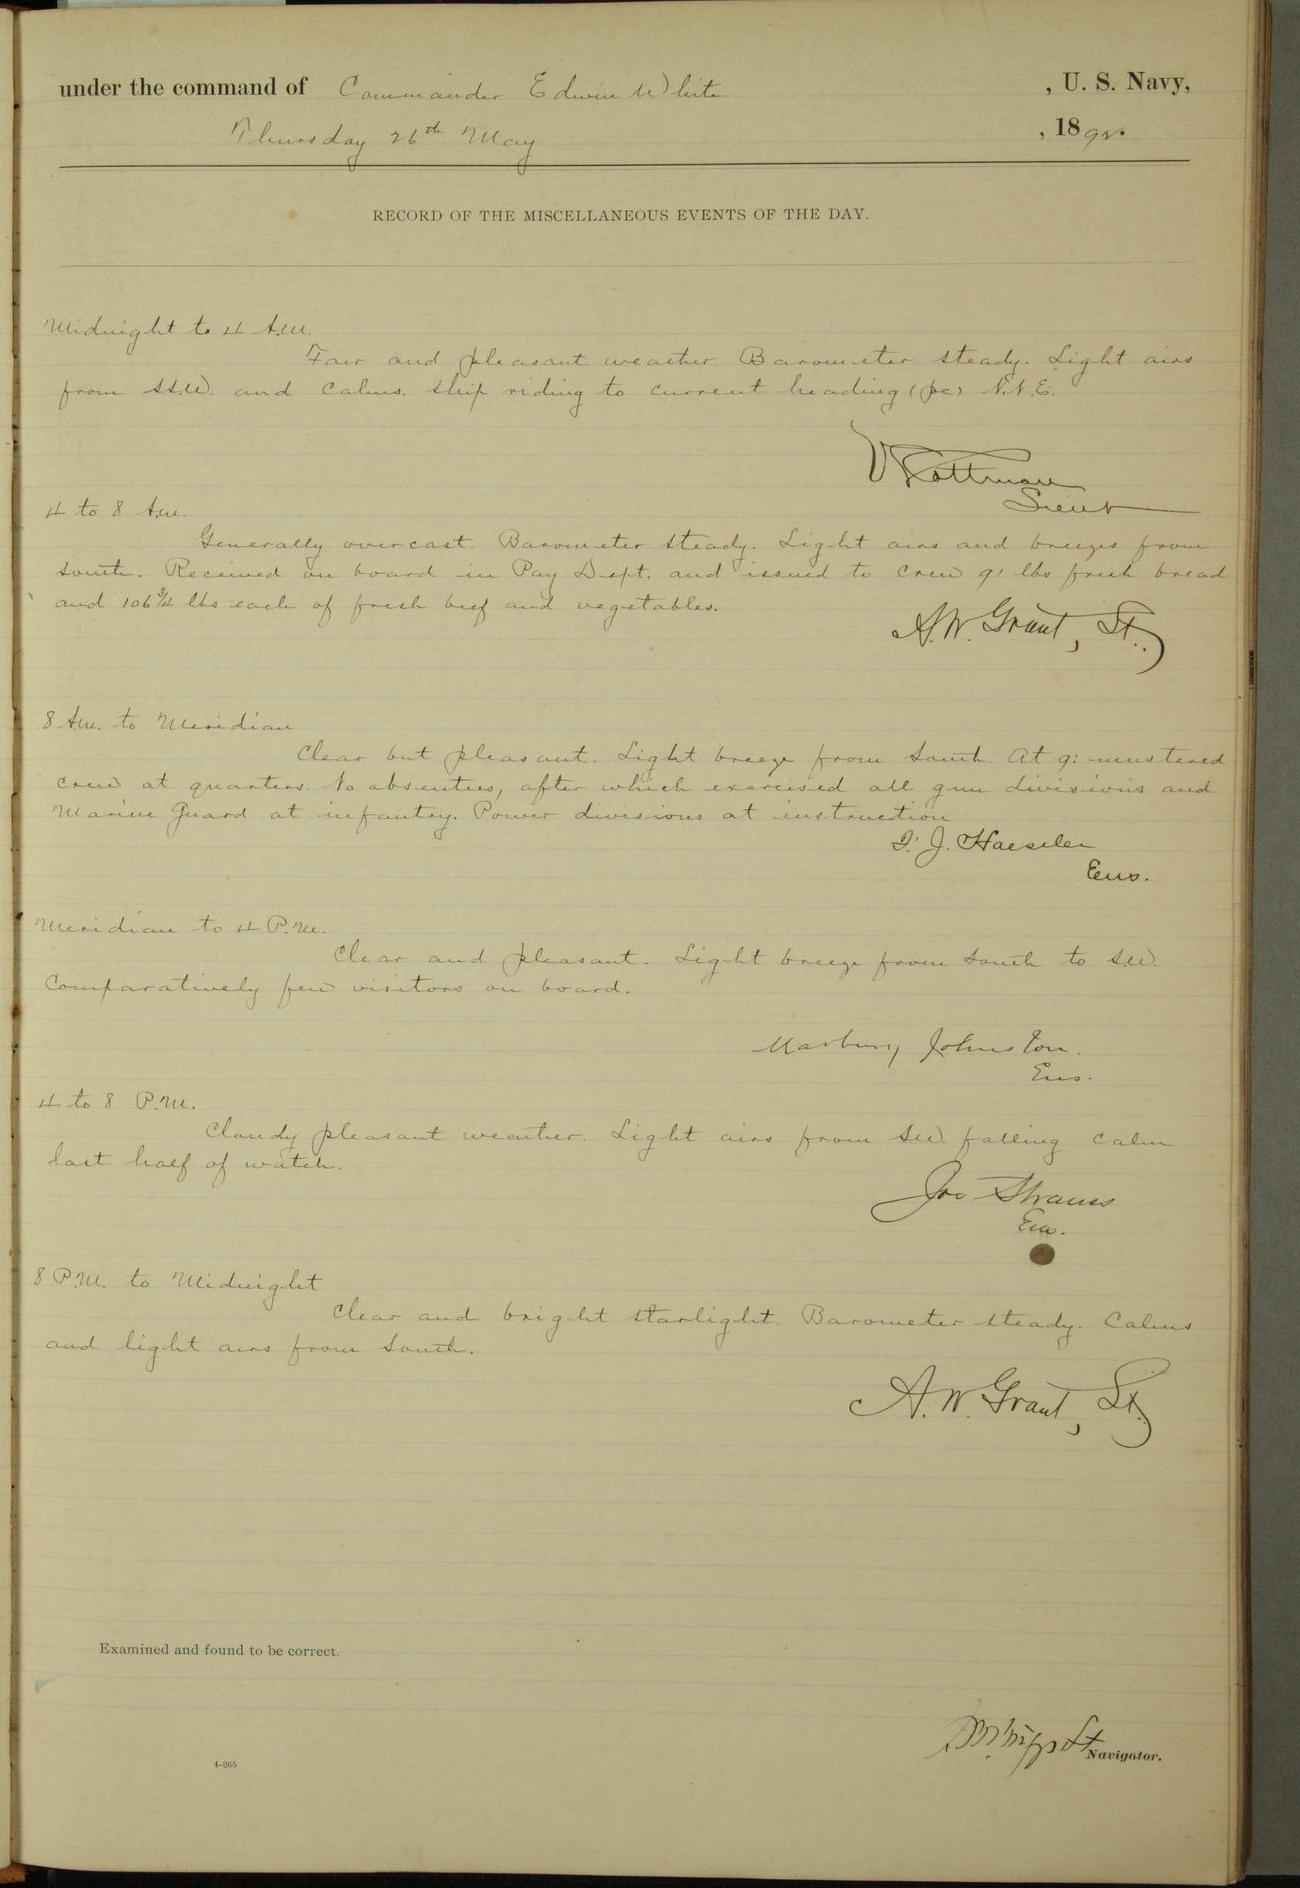 under the command of Commander Edwin White, U. S. Navy,
Thursday 26th May, 1892.
RECORD OF THE MISCELLANEOUS EVENTS OF THE DAY.
Midnight to 4 A.M.
Fair and pleasant weather. Barometer steady. Light airs
from SSW. and calms. Ship riding to current heading (pc) N.N.E.
V Kottman
Lieut
4 to 8 A.M.
Generally overcast. Barometer steady. Light airs and breezes from
South. Received on board in Pay Dept. and issued to crew 91 lbs fresh bread
and 106 3/4 lbs each of fresh beef and vegetables.
A. W. Grant, Lt.
8 A.M. to Meridian
Clear but pleasant. Light breeze from South. At 9: mustered
crew at quarters. No absentees, after which exercised all gun divisions and
Marine Guard at infantry. Power divisions at instruction
J. Haeseler
Ens.
Meridian to 4 P.M.
Clear and pleasant. Light breeze from South to SW.
Comparatively few visitors on board.
Marbury Johnston.
Ens.
4 to 8 P.M.
Cloudy pleasant weather. Light airs from SW. falling calm
last half of watch.
Jos Strauss
Ens.
8 P.M. to Midnight
Clear and bright starlight. Barometer steady. Calms
and light airs from South.
A. W. Grant, Lt.
Examined and found to be correct.
Navigator.
4—265